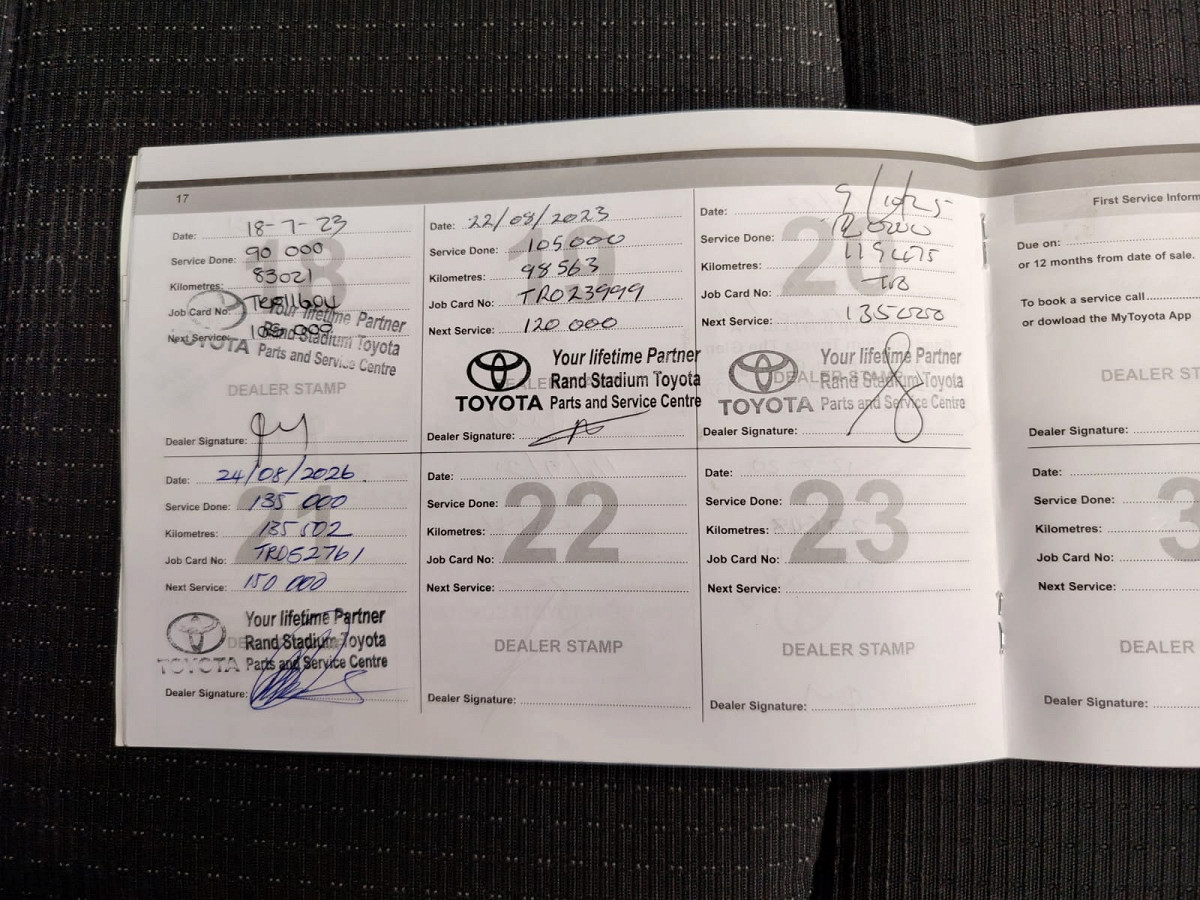 17
18
Date: 18-7-23
Service Done: 90 000
Kilometres: 83021
Job Card No:
Next Service:
Your lifetime Partner
Rand Stadium Toyota
TOYOTA Parts and Service Centre
DEALER STAMP
Dealer Signature:
19
Date: 22/08/2023
Service Done: 105000
Kilometres: 98563
Job Card No: TR023999
Next Service: 120 000
Your lifetime Partner
Rand Stadium Toyota
TOYOTA Parts and Service Centre
Dealer Signature:
20
Date:
Service Done:
Kilometres:
Job Card No:
Next Service:
Your lifetime Partner
DEALER STAMP
Rand Stadium Toyota
TOYOTA Parts and Service Centre
Dealer Signature:
21
Date: 24/08/2026
Service Done: 135 000
Kilometres: 135 502
Job Card No: TR052761
Next Service: 150 000
Your lifetime Partner
Rand Stadium Toyota
TOYOTA Parts and Service Centre
Dealer Signature:
22
Date:
Service Done:
Kilometres:
Job Card No:
Next Service:
DEALER STAMP
Dealer Signature:
23
Date:
Service Done:
Kilometres:
Job Card No:
Next Service:
DEALER STAMP
Dealer Signature:
First Service Inform
Due on:
or 12 months from date of sale.
To book a service call
or dowload the MyToyota App
DEALER ST
Dealer Signature:
3
Date:
Service Done:
Kilometres:
Job Card No:
Next Service:
DEALER
Dealer Signature: